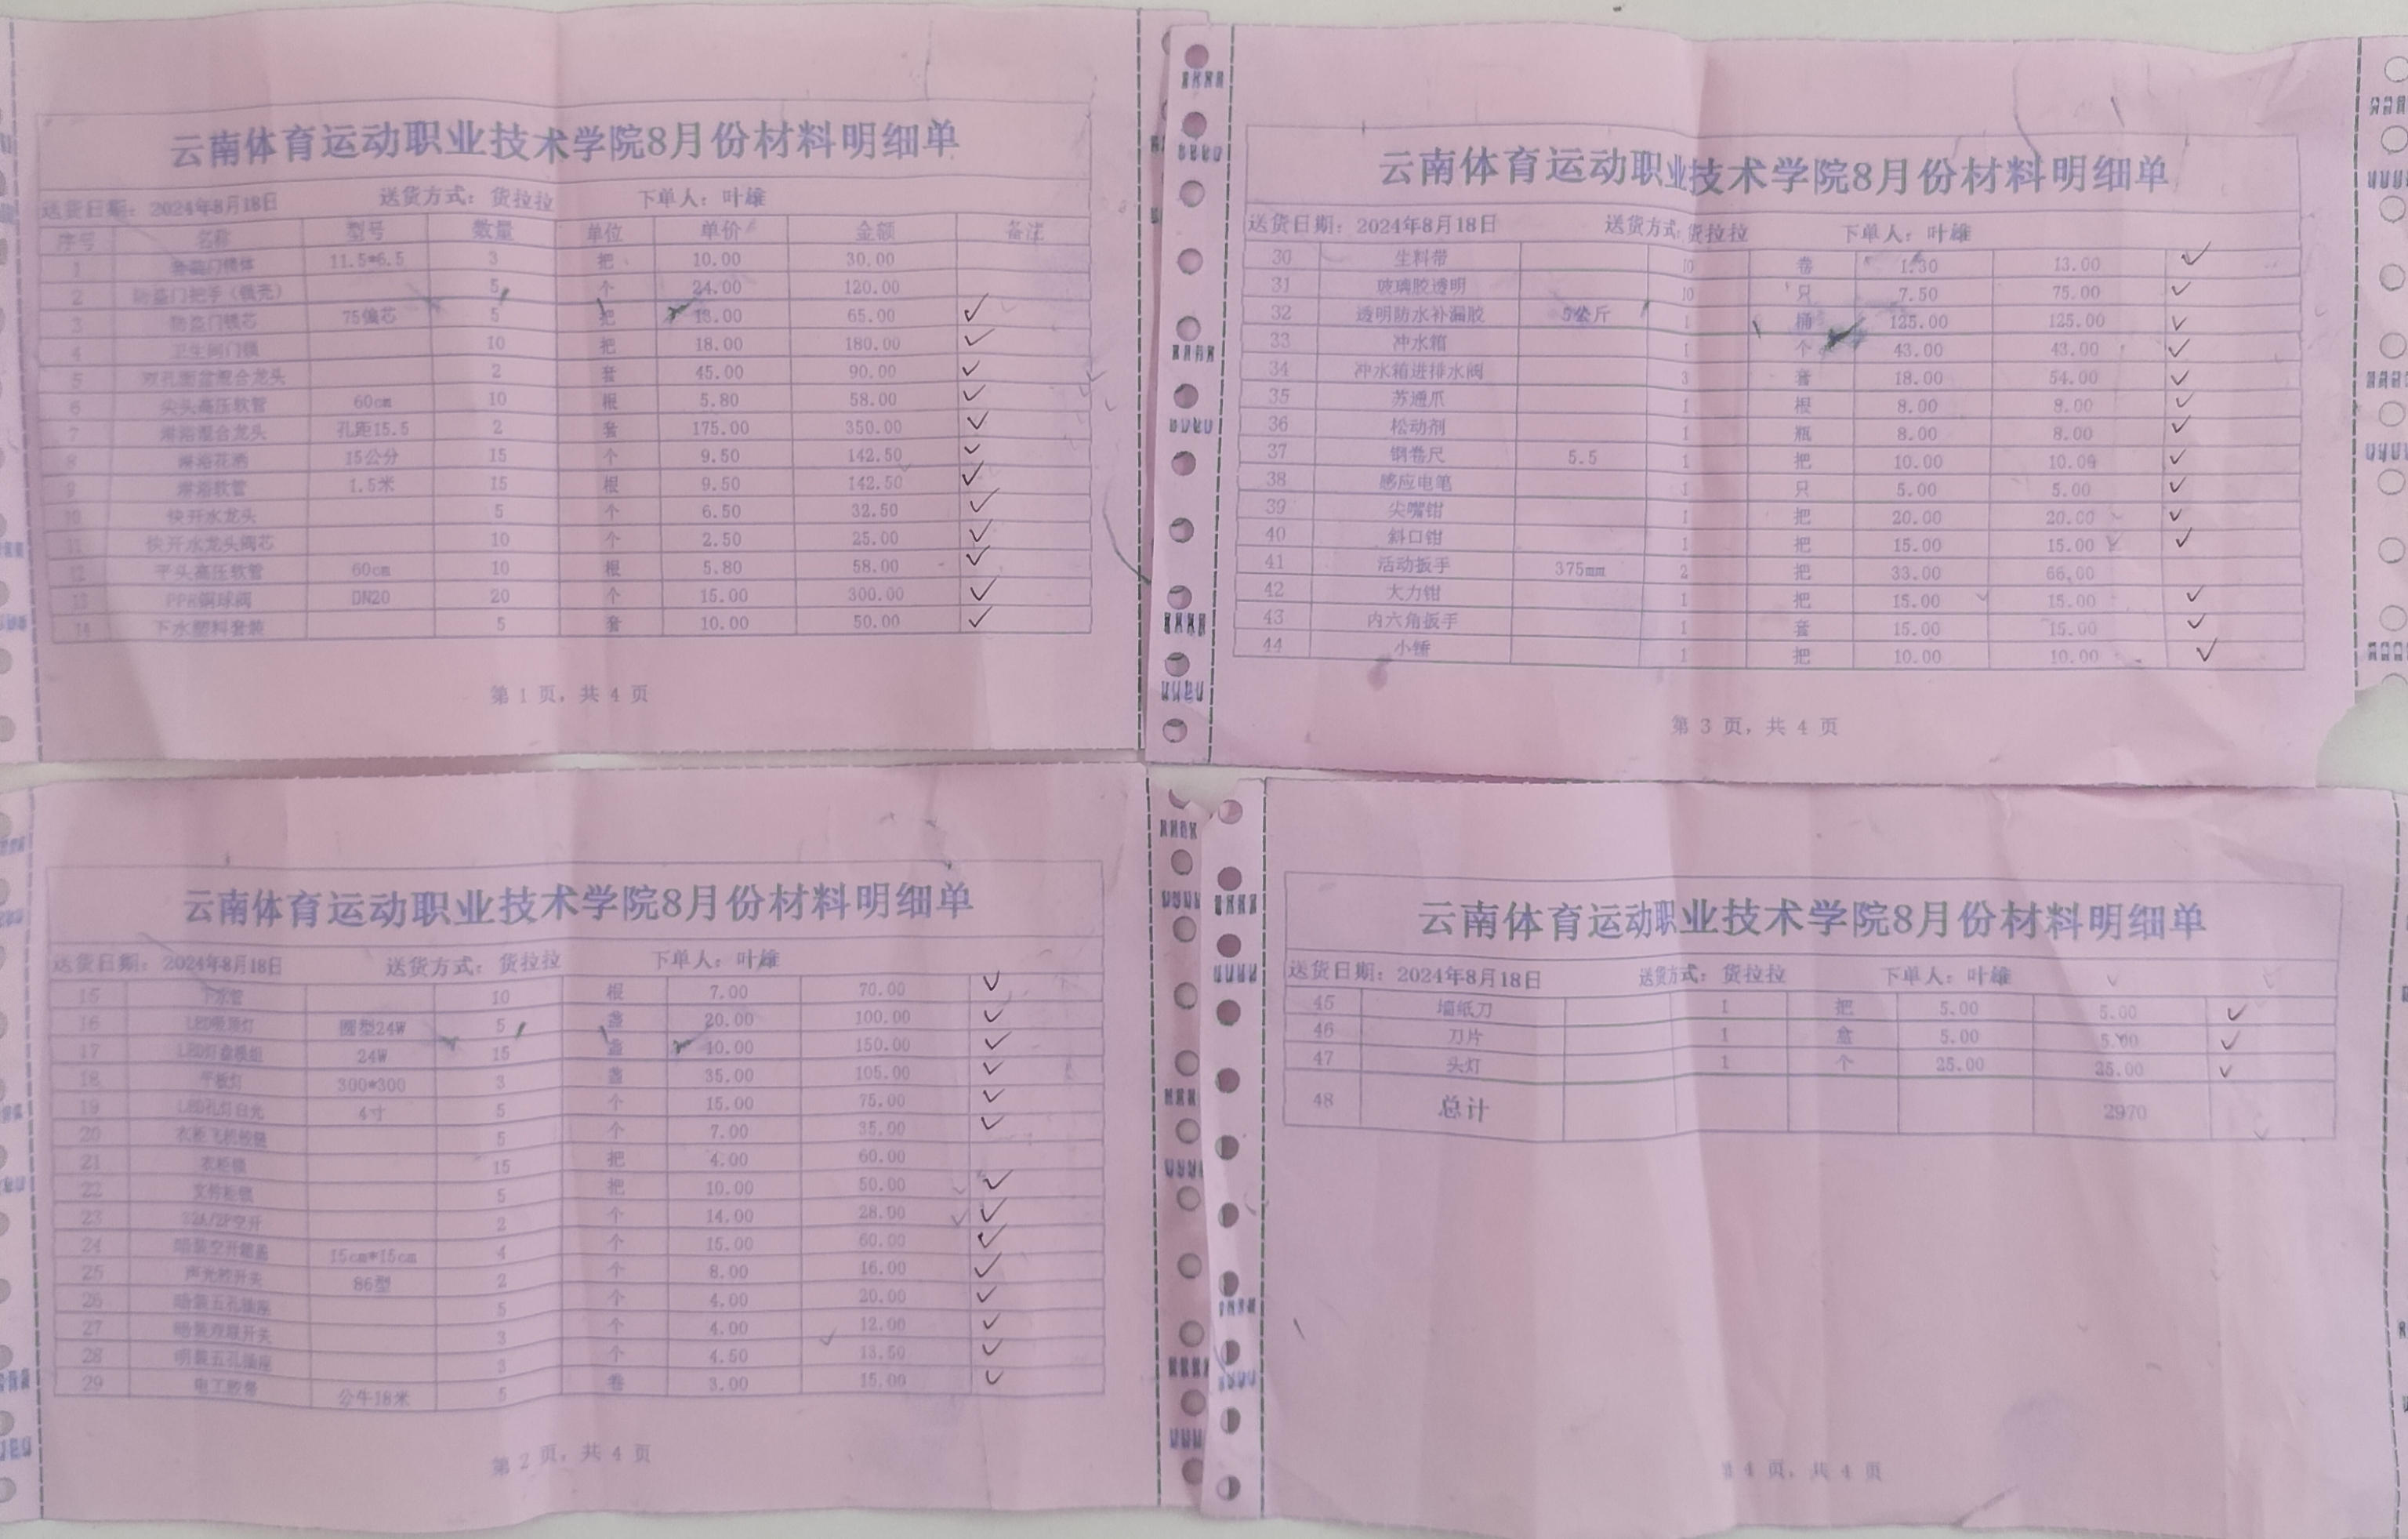 云南体育运动职业技术学院8月份材料明细单
送货日期：2024年8月18日 送货方式：货拉拉 下单人：叶雄
序号 名称 型号 数量 单位 单价 金额 备注
1 防盗门锁体 11.5*6.5 3 把 10.00 30.00
2 防盗门把手（锁壳） 5 个 24.00 120.00
3 防盗门锁芯 75偏芯 5 把 13.00 65.00 ✓
4 卫生间门锁 10 把 18.00 180.00 ✓
5 双孔面盆混合龙头 2 套 45.00 90.00 ✓
6 尖头高压软管 60cm 10 根 5.80 58.00 ✓
7 淋浴混合龙头 孔距15.5 2 套 175.00 350.00 ✓
8 淋浴花洒 15公分 15 个 9.50 142.50 ✓
9 淋浴软管 1.5米 15 根 9.50 142.50 ✓
10 快开水龙头 5 个 6.50 32.50 ✓
11 快开水龙头阀芯 10 个 2.50 25.00 ✓
12 平头高压软管 60cm 10 根 5.80 58.00 ✓
13 PPR铜球阀 DN20 20 个 15.00 300.00 ✓
14 下水塑料套装 5 套 10.00 50.00 ✓
第 1 页，共 4 页
云南体育运动职业技术学院8月份材料明细单
送货日期：2024年8月18日 送货方式：货拉拉 下单人：叶雄
15 下水管 10 根 7.00 70.00 ✓
16 LED吸顶灯 圆型24W 5 盏 20.00 100.00 ✓
17 LED灯盘模组 24W 15 盏 10.00 150.00 ✓
18 平板灯 300*300 3 盏 35.00 105.00 ✓
19 LED孔灯白光 4寸 5 个 15.00 75.00 ✓
20 衣柜飞机铰链 5 个 7.00 35.00 ✓
21 衣柜锁 15 把 4.00 60.00
22 文件柜锁 5 把 10.00 50.00 ✓
23 32A/2P空开 2 个 14.00 28.00 ✓
24 暗装空开箱盖 15cm*15cm 4 个 15.00 60.00 ✓
25 声光控开关 86型 2 个 8.00 16.00 ✓
26 暗装五孔插座 5 个 4.00 20.00 ✓
27 暗装双联开关 3 个 4.00 12.00 ✓
28 明装五孔插座 3 个 4.50 13.50 ✓
29 电工胶带 公牛18米 5 卷 3.00 15.00 ✓
第 2 页，共 4 页
云南体育运动职业技术学院8月份材料明细单
送货日期：2024年8月18日 送货方式：货拉拉 下单人：叶雄
30 生料带 10 卷 1.30 13.00 ✓
31 玻璃胶透明 10 只 7.50 75.00 ✓
32 透明防水补漏胶 5公斤 1 桶 125.00 125.00 ✓
33 冲水箱 1 个 43.00 43.00 ✓
34 冲水箱进排水阀 3 套 18.00 54.00 ✓
35 苏通爪 1 根 8.00 8.00 ✓
36 松动剂 1 瓶 8.00 8.00 ✓
37 钢卷尺 5.5 1 把 10.00 10.00 ✓
38 感应电笔 1 只 5.00 5.00 ✓
39 尖嘴钳 1 把 20.00 20.00 ✓
40 斜口钳 1 把 15.00 15.00 ✓
41 活动扳手 375mm 2 把 33.00 66.00
42 大力钳 1 把 15.00 15.00 ✓
43 内六角扳手 1 套 15.00 15.00 ✓
44 小锤 1 把 10.00 10.00 ✓
第 3 页，共 4 页
云南体育运动职业技术学院8月份材料明细单
送货日期：2024年8月18日 送货方式：货拉拉 下单人：叶雄
45 墙纸刀 1 把 5.00 5.00 ✓
46 刀片 1 盒 5.00 5.00 ✓
47 头灯 1 个 25.00 25.00 ✓
48 总计 2970
第 4 页，共 4 页